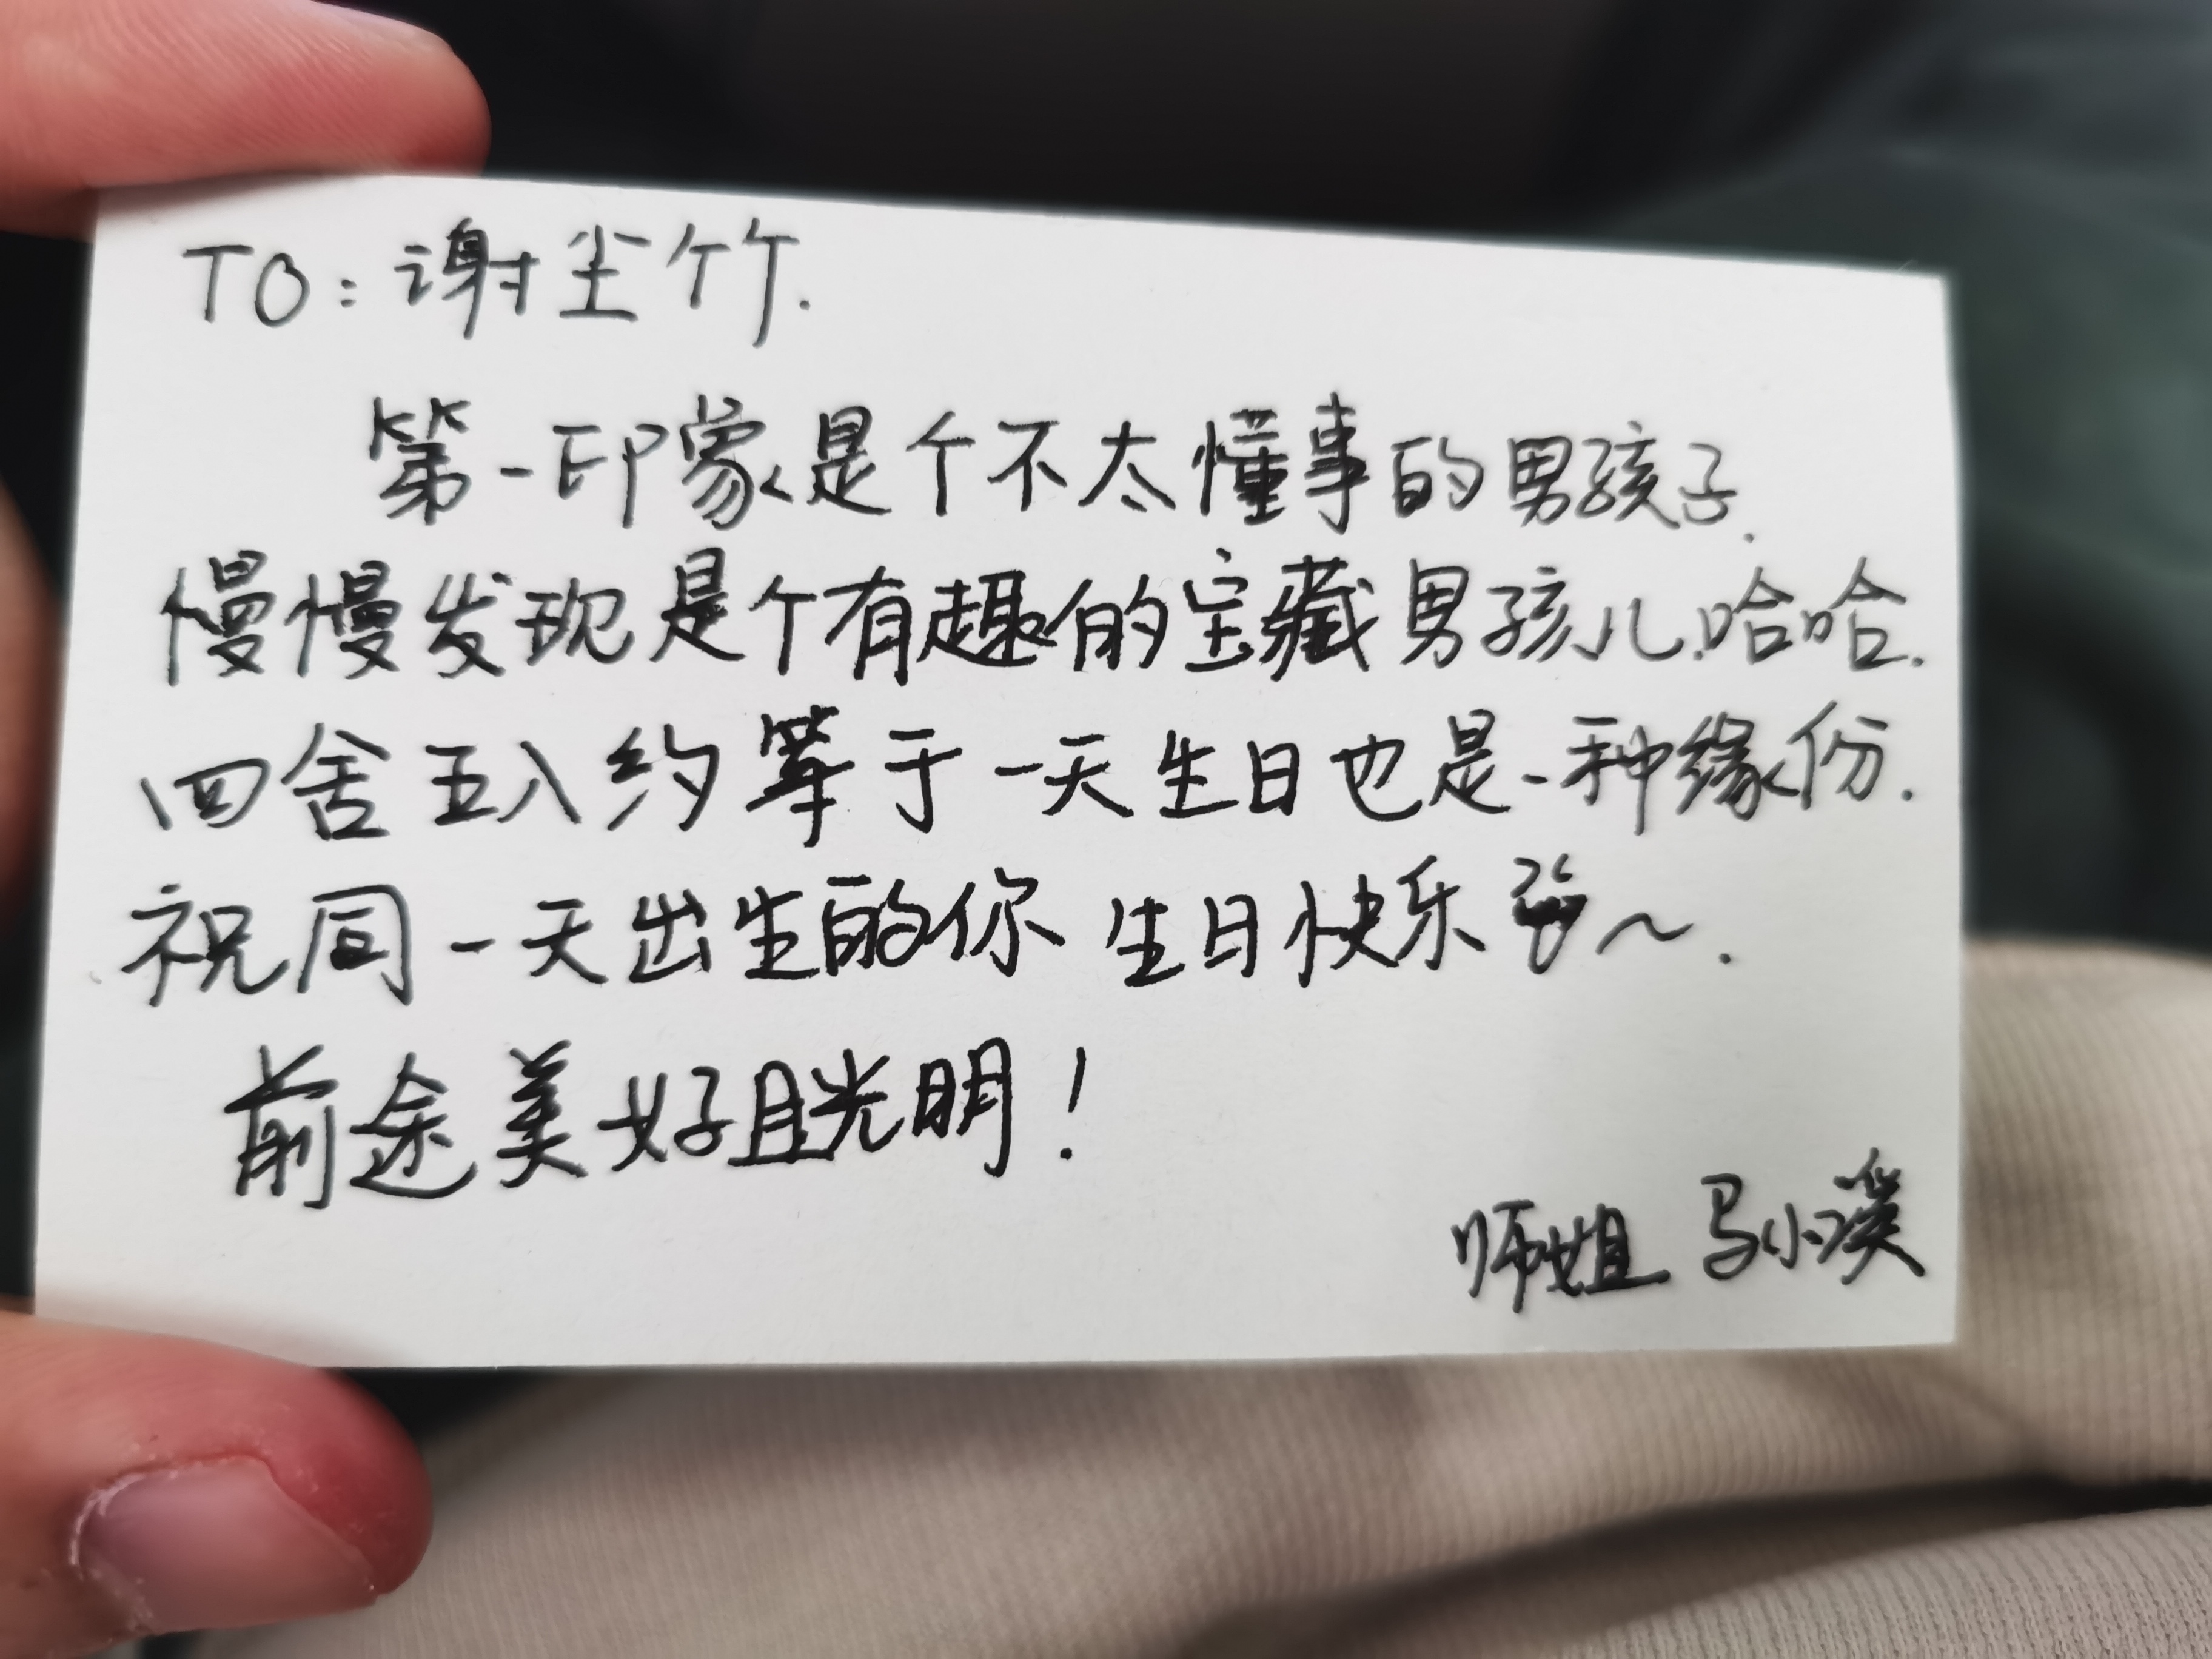 TO：谢尘竹.
第一印象是个不太懂事的男孩子.
慢慢发现是个有趣的宝藏男孩儿.哈哈.
四舍五入约等于一天生日也是一种缘份.
祝同一天出生的你 生日快乐 ~.
前途美好且光明！
师姐 马小溪